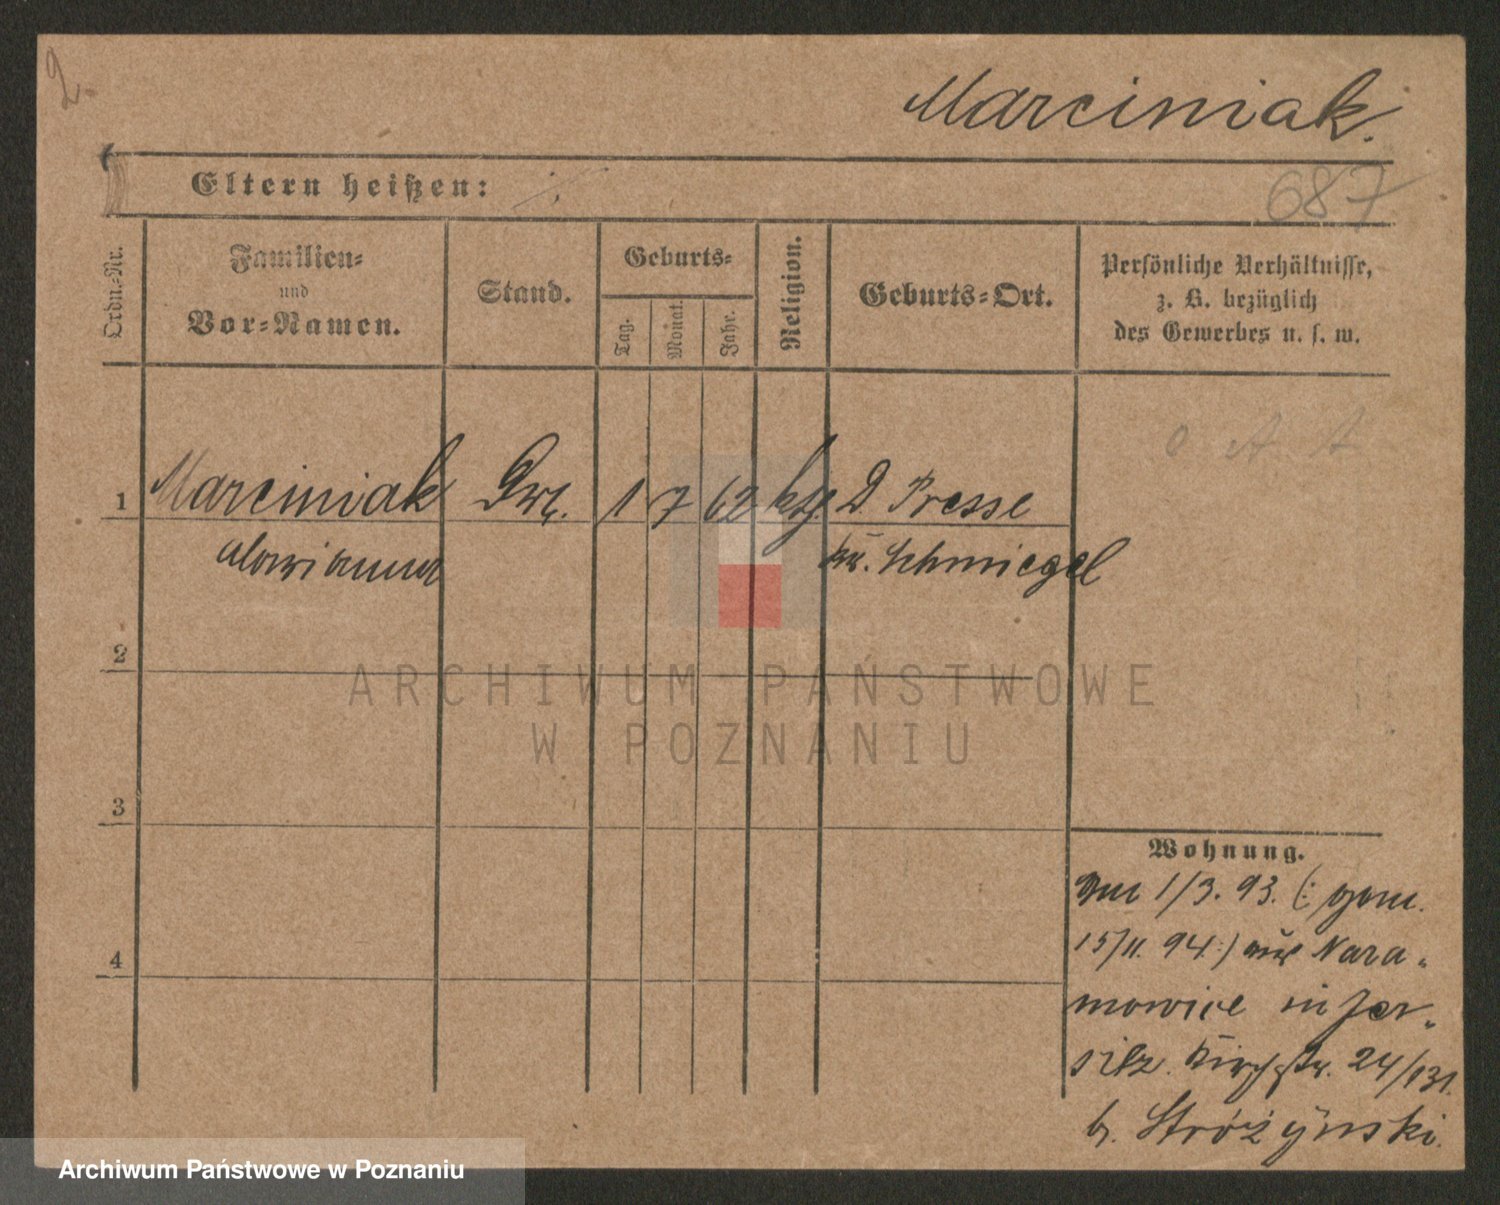 2.
Marciniak.
687
Eltern heißen: ./.
Ordn.-Nr.
Familien-
und
Vor-Namen.
Stand.
Geburts-
Tag.
Monat.
Jahr.
Religion.
Geburts-Ort.
Persönliche Verhältnisse,
z. B. bezüglich
des Gewerbes u. s. w.
1 Marciniak 1 7 62 kth. D. Presse
Kr. Schmiegel
2
3
4
Wohnung.
1/3. 93. (: gem.
15/11. 94 :) aus Nara-
mowice in Jer-
sitz. Kirchstr. 24/131.
b. Stróżynski.
ARCHIWUM PAŃSTWOWE
W POZNANIU
Archiwum Państwowe w Poznaniu